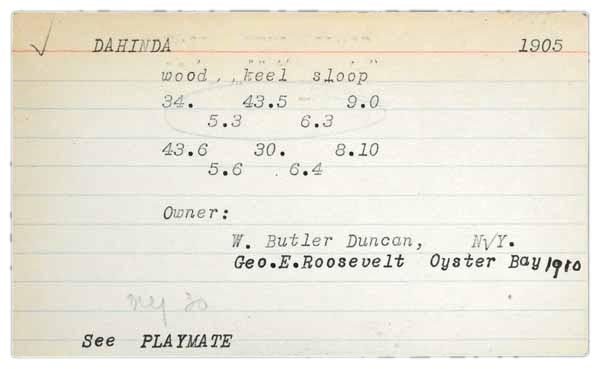 ✓ DAHINDA 1905
wood, keel sloop
34. 43.5 9.0
5.3 6.3
43.6 30. 8.10
5.6 6.4
Owner:
W. Butler Duncan, N.Y.
Geo.E.Roosevelt Oyster Bay 1910
See PLAYMATE